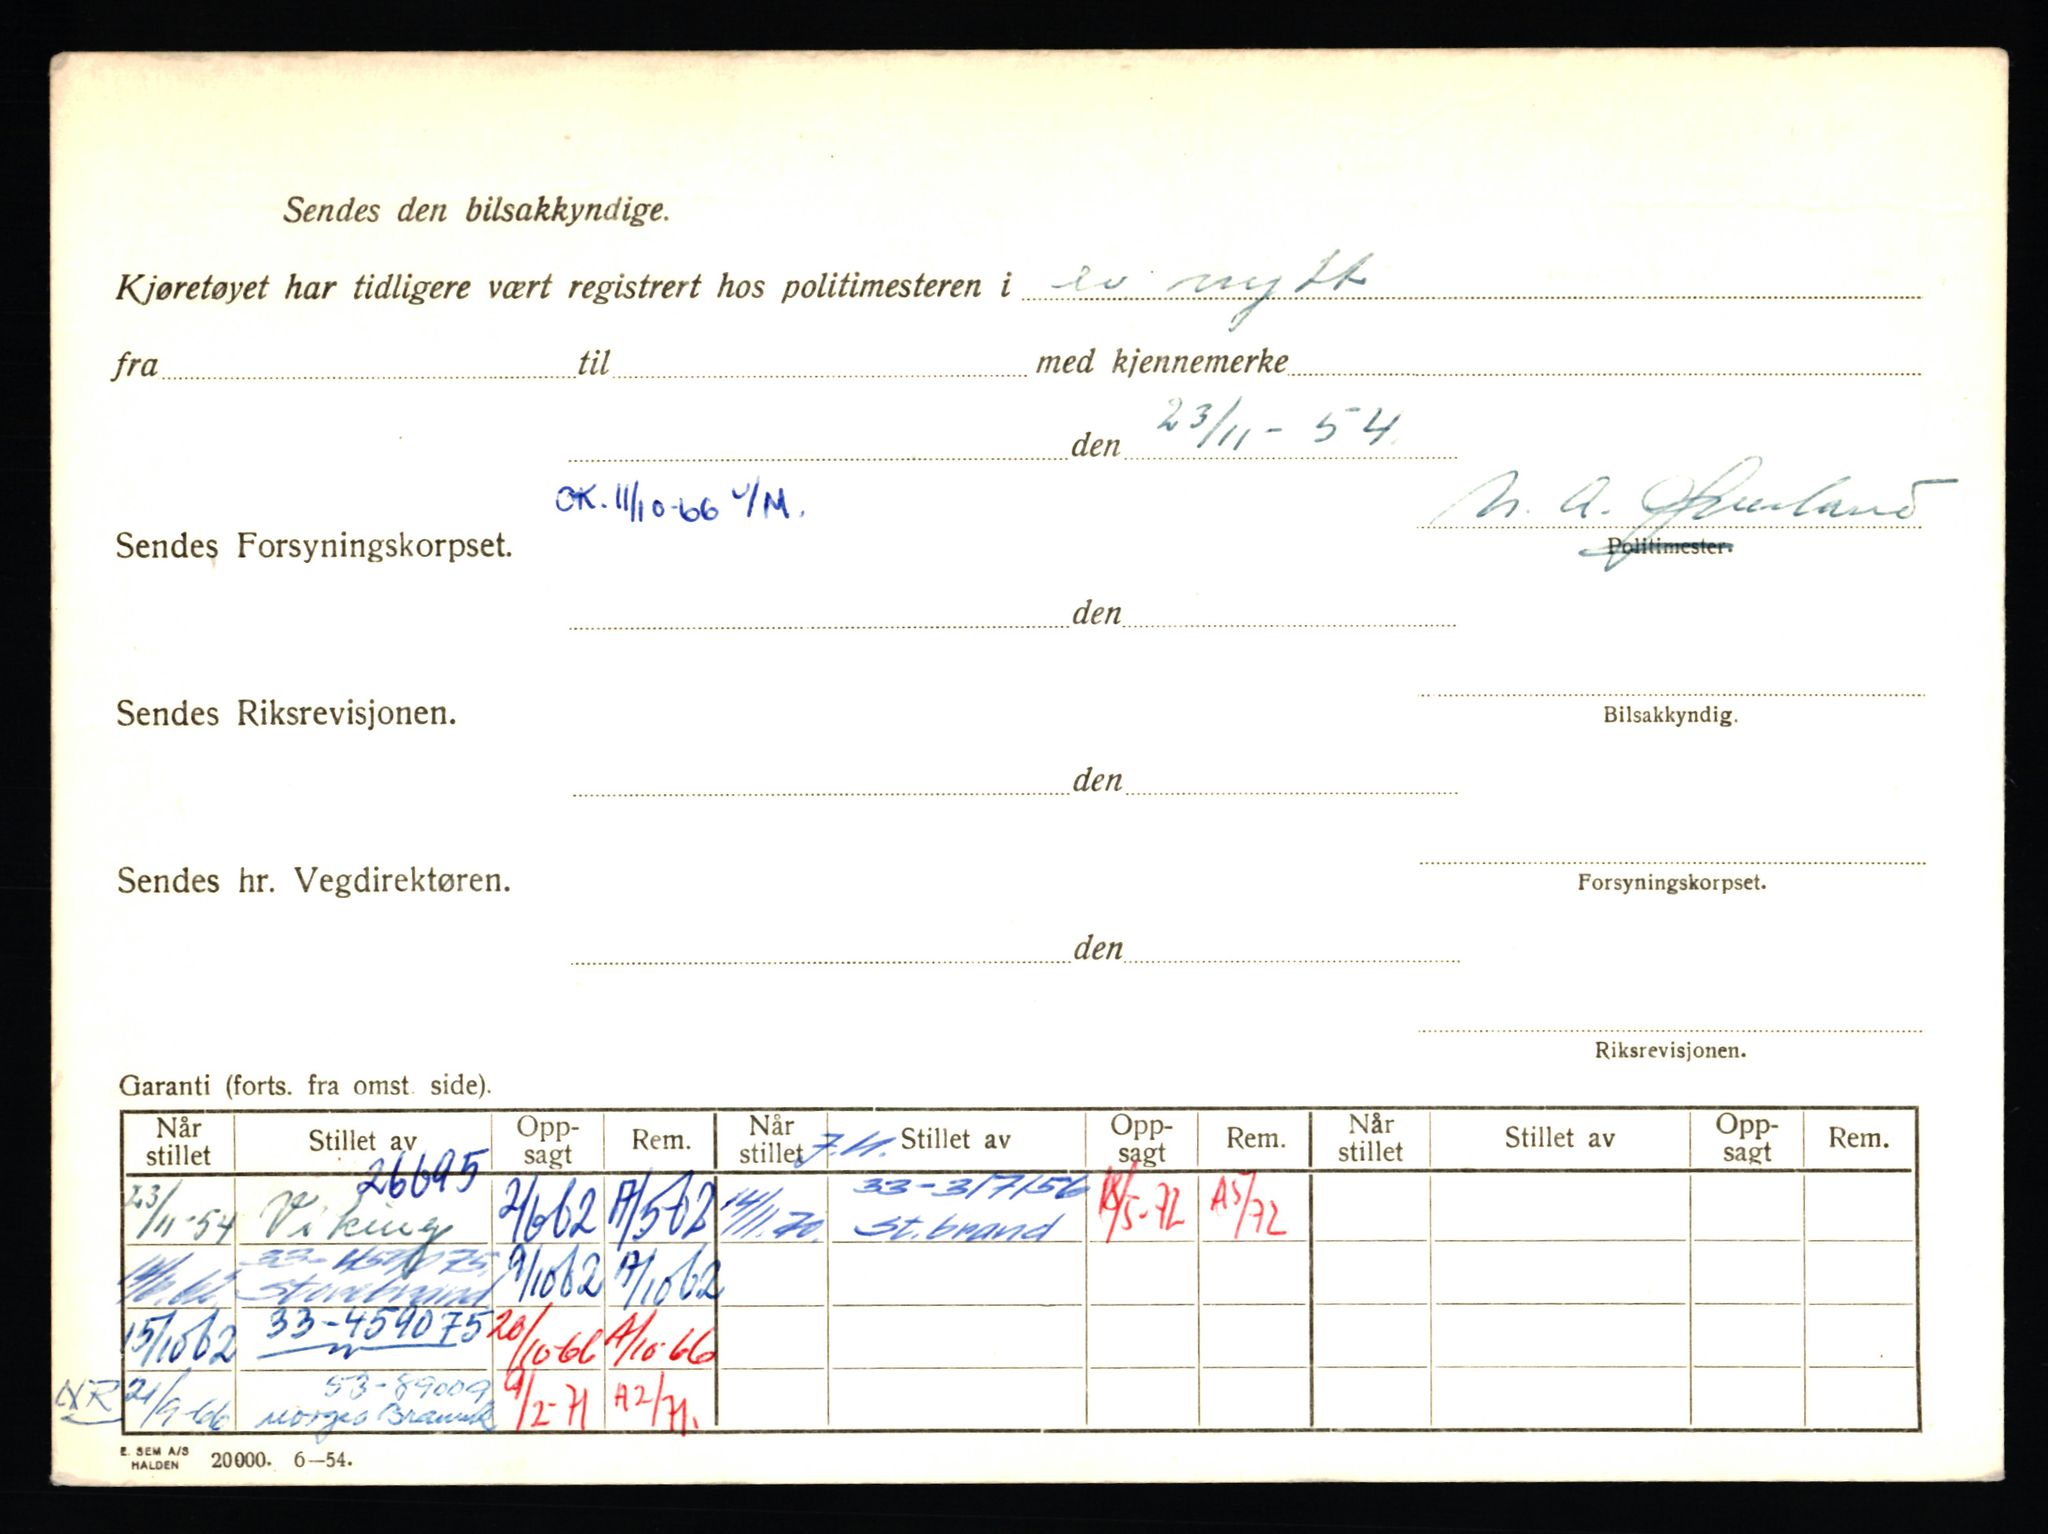 Sendes den bilsakkyndige.
Kjøretøyet har tidligere vært registrert hos politimesteren i er nytt
fra til med kjennemerke
den 23/11 - 54.
OK. 11/10-66
Sendes Forsyningskorpset.
Politimester.
den
Sendes Riksrevisjonen.
Bilsakkyndig.
den
Sendes hr. Vegdirektøren.
Forsyningskorpset.
den
Riksrevisjonen.
Garanti (forts. fra omst. side).
Når stillet Stillet av Opp-sagt Rem. Når stillet Stillet av Opp-sagt Rem. Når stillet Stillet av Opp-sagt Rem.
26695 33-317156
23/11-54 Viking 2/6 62 A/5-62 14/11.70. St.brand /5-72 A5/72
33-459075
Storebrand 9/10 62 A/10 62
15/10 62 33-459075 20/10-66 A/10-66
53-89009
NR 21/9-66 Norges Brannk 9/2-71 A2/71.
E. SEM A/S
HALDEN 20000. 6—54.